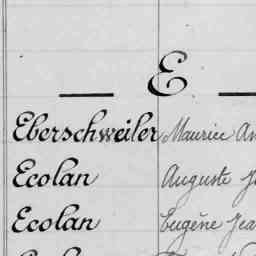 E
Eberschweiler Maurice
Ecolan Auguste
Ecolan Eugène